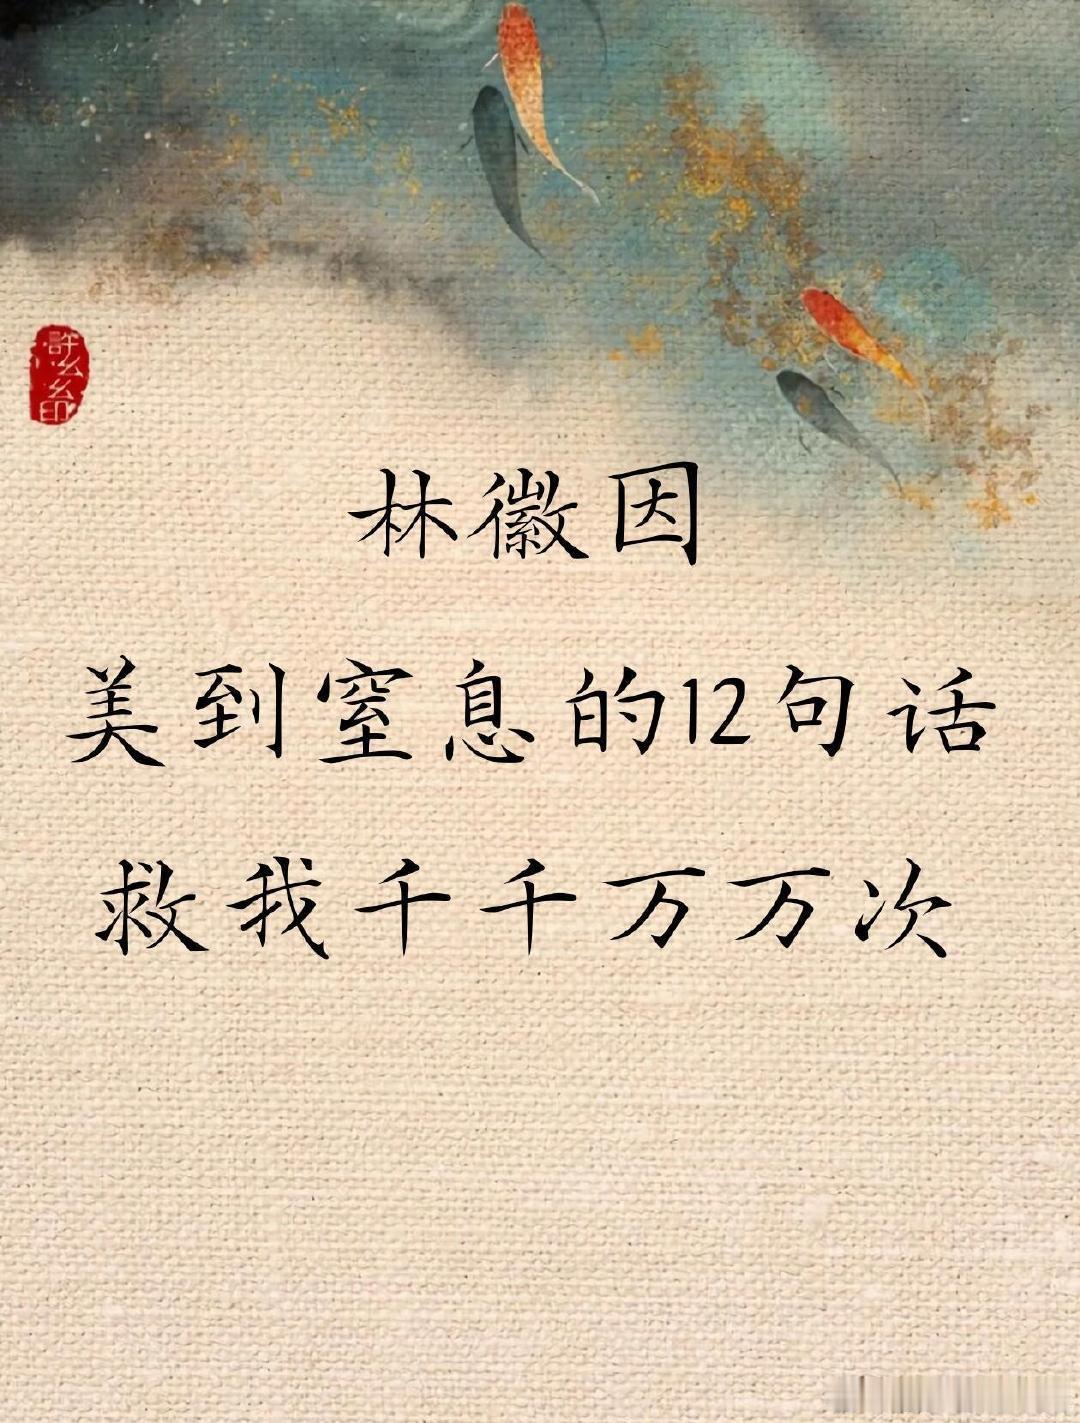 林徽因
美到窒息的12句话
救我千千万万次